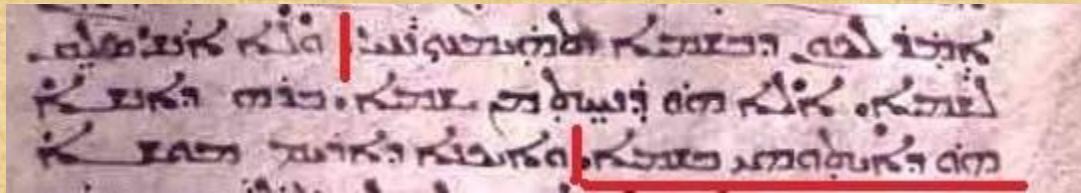 ܐܡܪ ܠܟܘܢ ܕܒܫܡܝܐ ܬܗܝܡܢܘܢܢܝ ܘܠܐ ܐܢܫ ܣܠܩ
ܠܫܡܝܐ. ܐܠܐ ܗܘ ܕܢܚܬ ܡܢ ܫܡܝܐ. ܒܪܗ ܕܐܢܫܐ
ܗܘ ܕܐܝܬܘܗܝ ܒܫܡܝܐ. ܘܐܝܟܢܐ ܕܐܪܝܡ ܡܘܫܐ